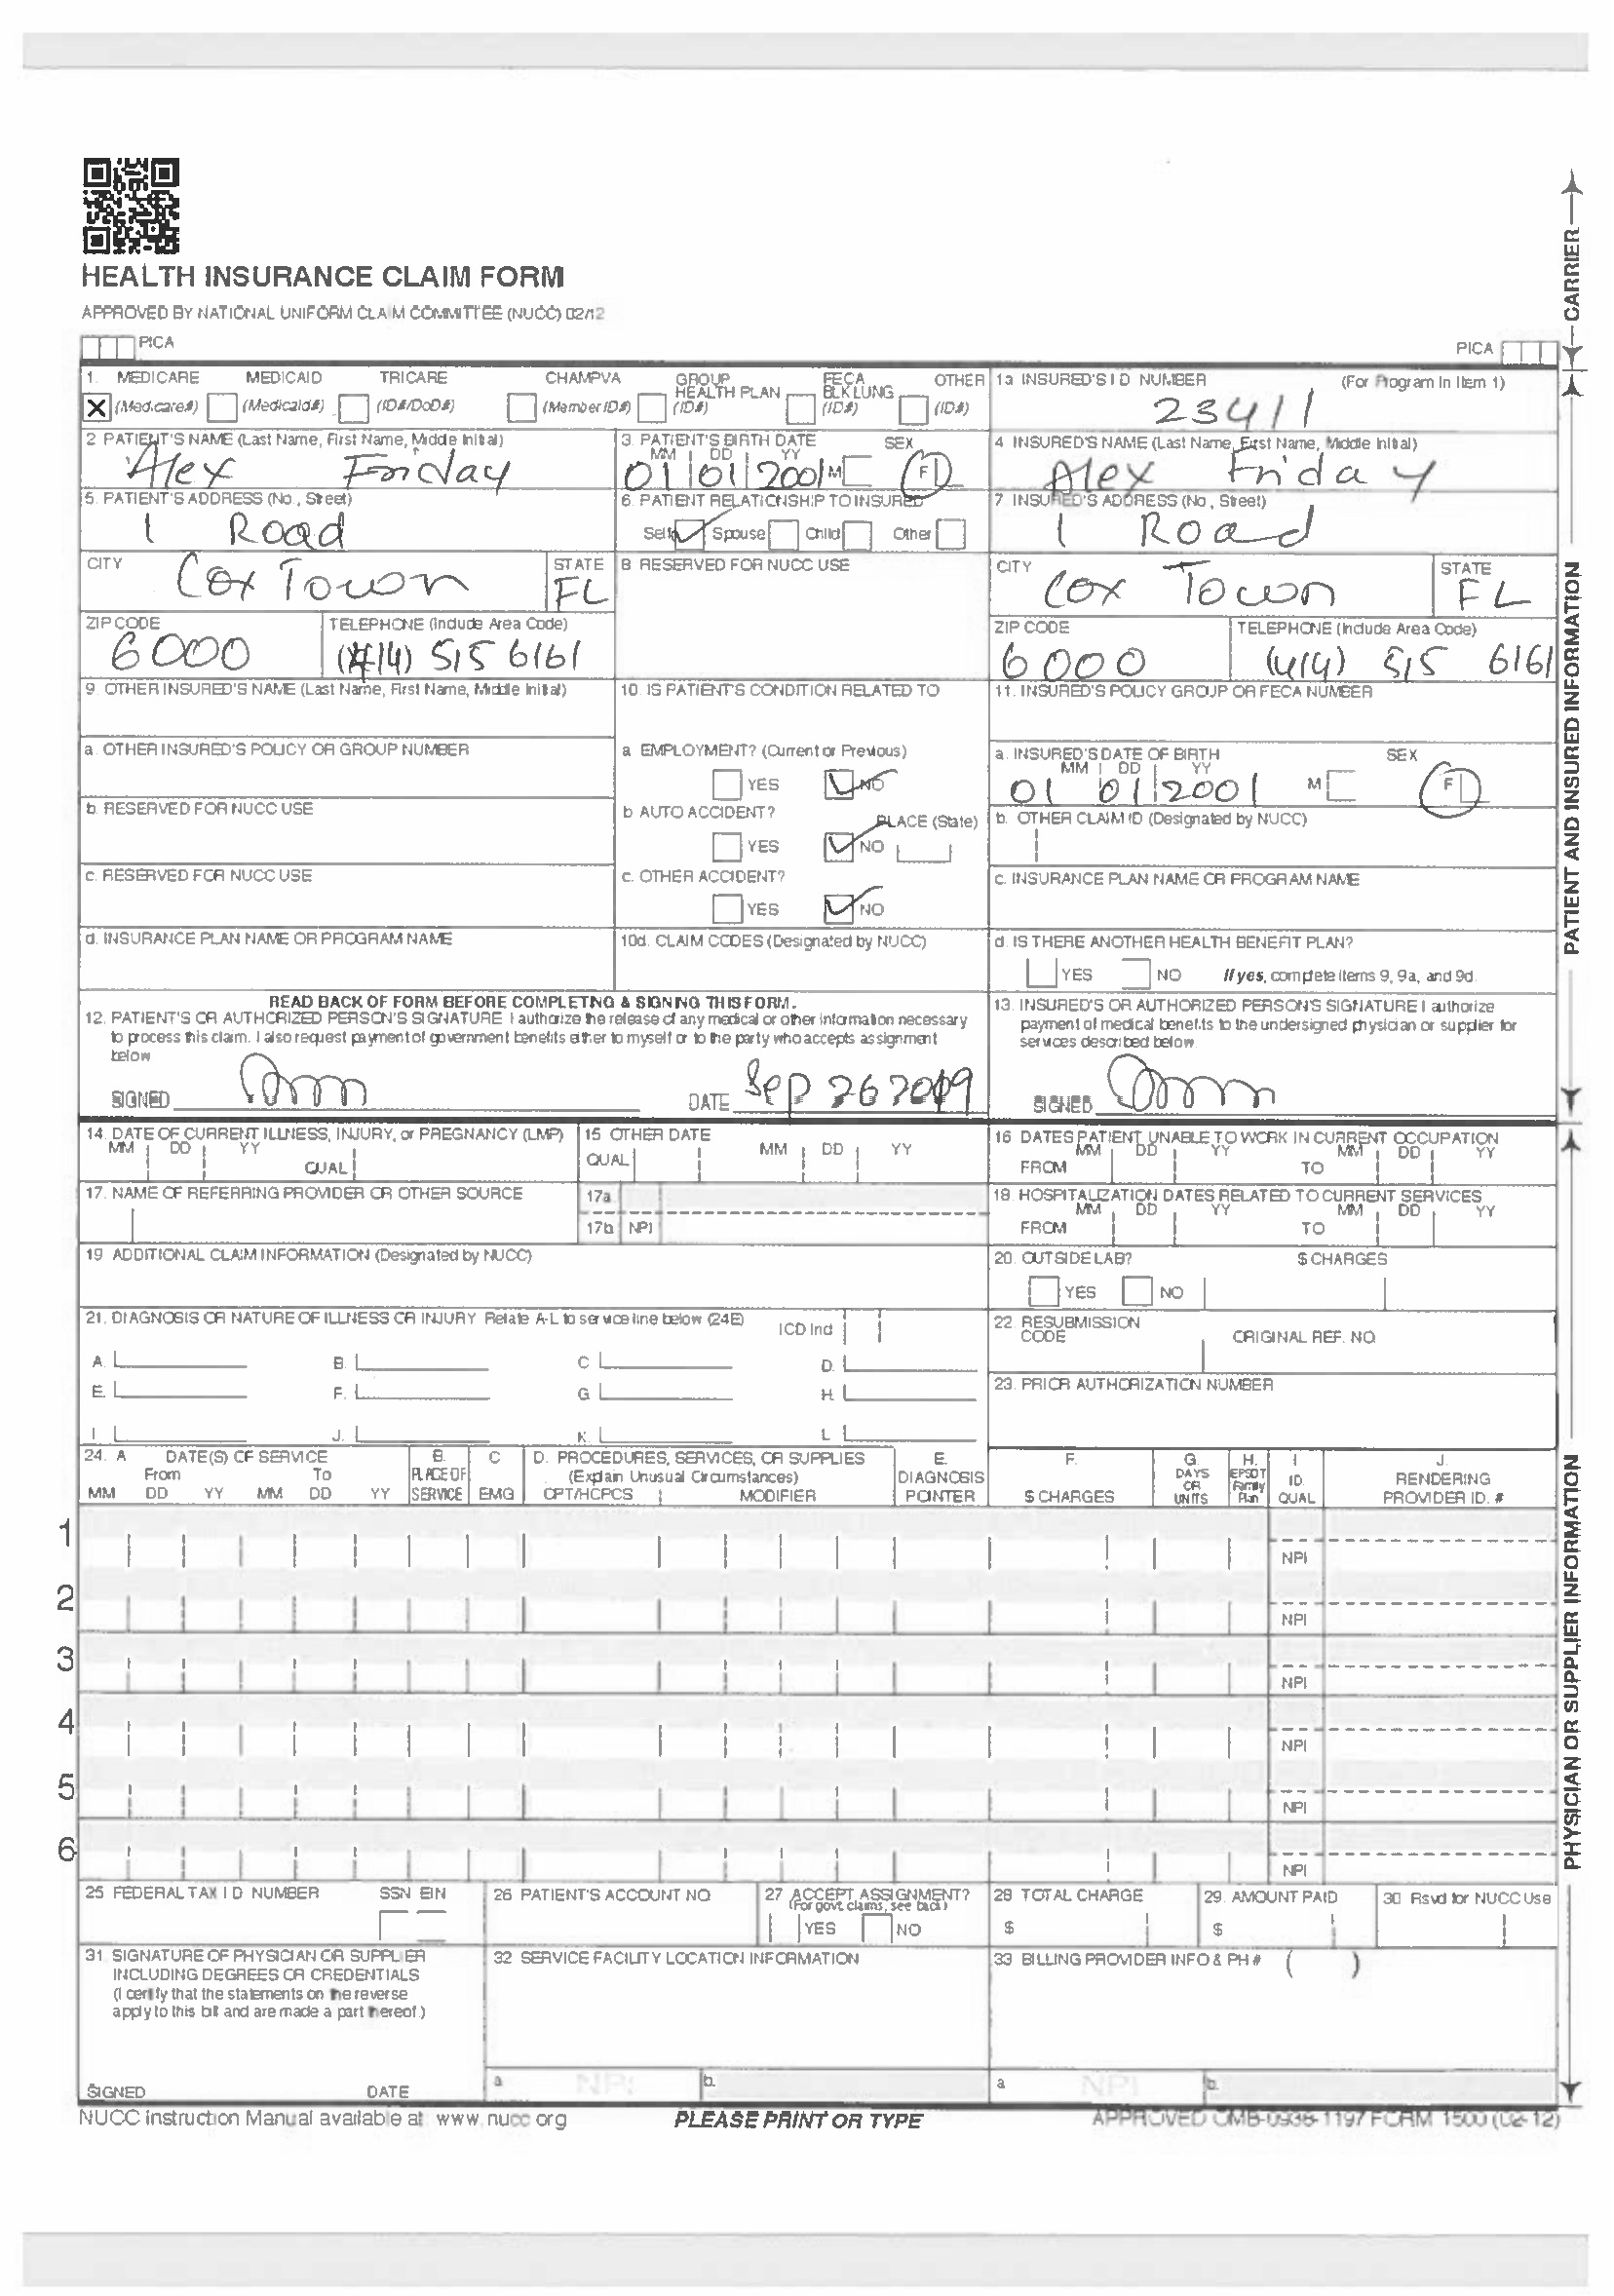 HEALTH INSURANCE CLAIM FORM
APPROVED BY NATIONAL UNIFORM CLAIM COMMITTEE (NUCC) 02/12
PICA
PICA
CARRIER
1. MEDICARE MEDICAID TRICARE CHAMPVA GROUP HEALTH PLAN FECA BLK LUNG OTHER
(Medicare#) (Medicaid#) (ID#/DoD#) (Member ID#) (ID#) (ID#) (ID#)
1a INSURED'S I D NUMBER (For Program in Item 1)
23411
2 PATIENT'S NAME (Last Name, First Name, Middle Initial)
Alex Friday
3. PATIENT'S BIRTH DATE SEX
MM DD YY
01 01 2001 M F
4 INSURED'S NAME (Last Name, First Name, Middle Initial)
Alex Friday
5. PATIENT'S ADDRESS (No, Street)
1 Road
6. PATIENT RELATIONSHIP TO INSURED
Self Spouse Child Other
7 INSURED'S ADDRESS (No, Street)
1 Road
CITY STATE
Cox Town FL
8 RESERVED FOR NUCC USE
CITY STATE
Cox Town FL
ZIP CODE TELEPHONE (Include Area Code)
6000 (414) 515 6161
ZIP CODE TELEPHONE (Include Area Code)
6000 (414) 515 6161
9. OTHER INSURED'S NAME (Last Name, First Name, Middle Initial)
10. IS PATIENT'S CONDITION RELATED TO
11. INSURED'S POLICY GROUP OR FECA NUMBER
a. OTHER INSURED'S POLICY OR GROUP NUMBER
a EMPLOYMENT? (Current or Previous)
YES NO
a. INSURED'S DATE OF BIRTH SEX
MM DD YY
01 01 2001 M F
b. RESERVED FOR NUCC USE
b AUTO ACCIDENT?
PLACE (State)
YES NO
b. OTHER CLAIM ID (Designated by NUCC)
c. RESERVED FOR NUCC USE
c. OTHER ACCIDENT?
YES NO
c. INSURANCE PLAN NAME OR PROGRAM NAME
d. INSURANCE PLAN NAME OR PROGRAM NAME
10d. CLAIM CODES (Designated by NUCC)
d. IS THERE ANOTHER HEALTH BENEFIT PLAN?
YES NO If yes, complete items 9, 9a, and 9d.
PATIENT AND INSURED INFORMATION
READ BACK OF FORM BEFORE COMPLETNG & SIGNNG THIS FORM.
12. PATIENT'S OR AUTHORIZED PERSON'S SIGNATURE I authorize the release of any medical or other information necessary
to process this claim. I also request payment of government benefits either to myself or to the party who accepts assignment
below
SIGNED DATE Sep 26 2019
13. INSURED'S OR AUTHORIZED PERSON'S SIGNATURE I authorize
payment of medical benefits to the undersigned physician or supplier for
services described below.
SIGNED
14. DATE OF CURRENT ILLNESS, INJURY, or PREGNANCY (LMP)
MM DD YY
QUAL
15 OTHER DATE
QUAL MM DD YY
16 DATES PATIENT UNABLE TO WORK IN CURRENT OCCUPATION
MM DD YY MM DD YY
FROM TO
17. NAME OF REFERRING PROVIDER OR OTHER SOURCE
17a
17b NPI
18. HOSPITALIZATION DATES RELATED TO CURRENT SERVICES
MM DD YY MM DD YY
FROM TO
19 ADDITIONAL CLAIM INFORMATION (Designated by NUCC)
20. OUTSIDE LAB? $ CHARGES
YES NO
21. DIAGNOSIS OR NATURE OF ILLNESS OR INJURY Relate A-L to service line below (24E)
ICD Ind
A. B. C D.
E. F. G H.
I. J. K. L
22. RESUBMISSION
CODE ORIGINAL REF. NO
23. PRIOR AUTHORIZATION NUMBER
24. A DATE(S) OF SERVICE
From To
MM DD YY MM DD YY
B. PLACE OF SERVICE
C EMG
D. PROCEDURES, SERVICES, OR SUPPLIES
(Explain Unusual Circumstances)
CPT/HCPCS MODIFIER
E. DIAGNOSIS POINTER
F. $ CHARGES
G DAYS OR UNITS
H. EPSDT Family Plan
I ID. QUAL
J. RENDERING PROVIDER ID. #
1 NPI
2 NPI
3 NPI
4 NPI
5 NPI
6 NPI
PHYSICIAN OR SUPPLIER INFORMATION
25 FEDERAL TAX I D NUMBER SSN EIN
26 PATIENT'S ACCOUNT NO
27 ACCEPT ASSIGNMENT?
(For govt. claims, see back)
YES NO
28 TOTAL CHARGE
$
29. AMOUNT PAID
$
30 Rsvd for NUCC Use
31. SIGNATURE OF PHYSICIAN OR SUPPLIER
INCLUDING DEGREES OR CREDENTIALS
(I certify that the statements on the reverse
apply to this bill and are made a part thereof.)
SIGNED DATE
32 SERVICE FACILITY LOCATION INFORMATION
a NPI b.
33 BILLING PROVIDER INFO & PH # ( )
a NPI b.
NUCC Instruction Manual available at www.nucc org
PLEASE PRINT OR TYPE
APPROVED OMB-0938-1197 FORM 1500 (02-12)